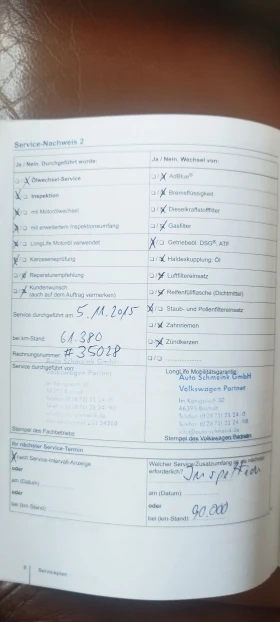 Service-Nachweis 2
Ja / Nein. Durchgeführt wurde:
Ja / Nein. Wechsel von:
Ölwechsel-Service
Inspektion
mit Motorölwechsel
mit erweitertem Inspektionsumfang
LongLife Motoröl verwendet
Karosserieprüfung
Reparaturempfehlung
Kundenwunsch
(auch auf dem Auftrag vermerken)
AdBlue®
Bremsflüssigkeit
Dieselkraftstofffilter
Gasfilter
Getriebeöl: DSG®, ATF
Haldexkupplung: Öl
Luftfiltereinsatz
Reifenfüllflasche (Dichtmittel)
Staub- und Pollenfiltereinsatz
Zahnriemen
Zündkerzen
Service durchgeführt am 5.11.2015
bei km-Stand: 61.380
Rechnungsnummer #35028
Service durchgeführt von:
Auto Schmeink GmbH
Volkswagen Partner
Stempel des Fachbetriebs
LongLife Mobilitätsgarantie:
Auto Schmeink GmbH
Volkswagen Partner
Im Königsesch 30
46395 Bocholt
Stempel des Volkswagen Betriebs
Ihr nächster Service-Termin
nach Service-Intervall-Anzeige
oder
am (Datum)
oder
bei (km-Stand)
Welcher Service/Zusatzumfang ist als nächstes
erforderlich? Inspektion
am (Datum)
oder
bei (km-Stand) 90.000
8 Serviceplan